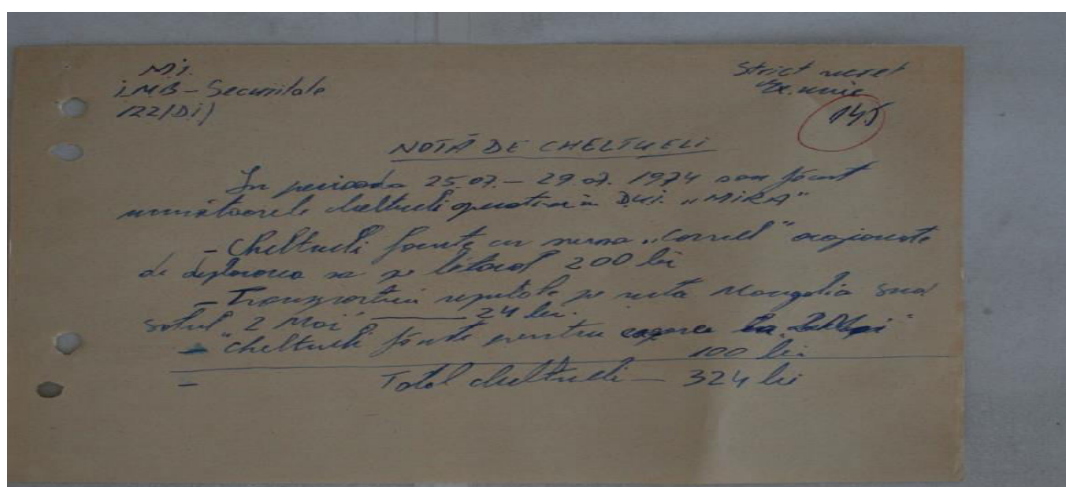 M.I.
I.M.B - Securitate
122/D.i/
Strict secret
Ex. unic
145
NOTĂ DE CHELTUELI
In perioada 25.07. - 29.07. 1974 sau făcut
următoarele cheltueli operative in D.U.I. „MIRA”
- Cheltueli facute cu sursa „Cornel” ocazionate
de deplasarea sa pe litoral 200 lei
- Transporturi repetate pe ruta Mangalia
satul „2 Mai” — 24 lei.
- cheltueli făcute pentru cazarea la „2 Mai”
100 lei
- Total cheltueli — 324 lei